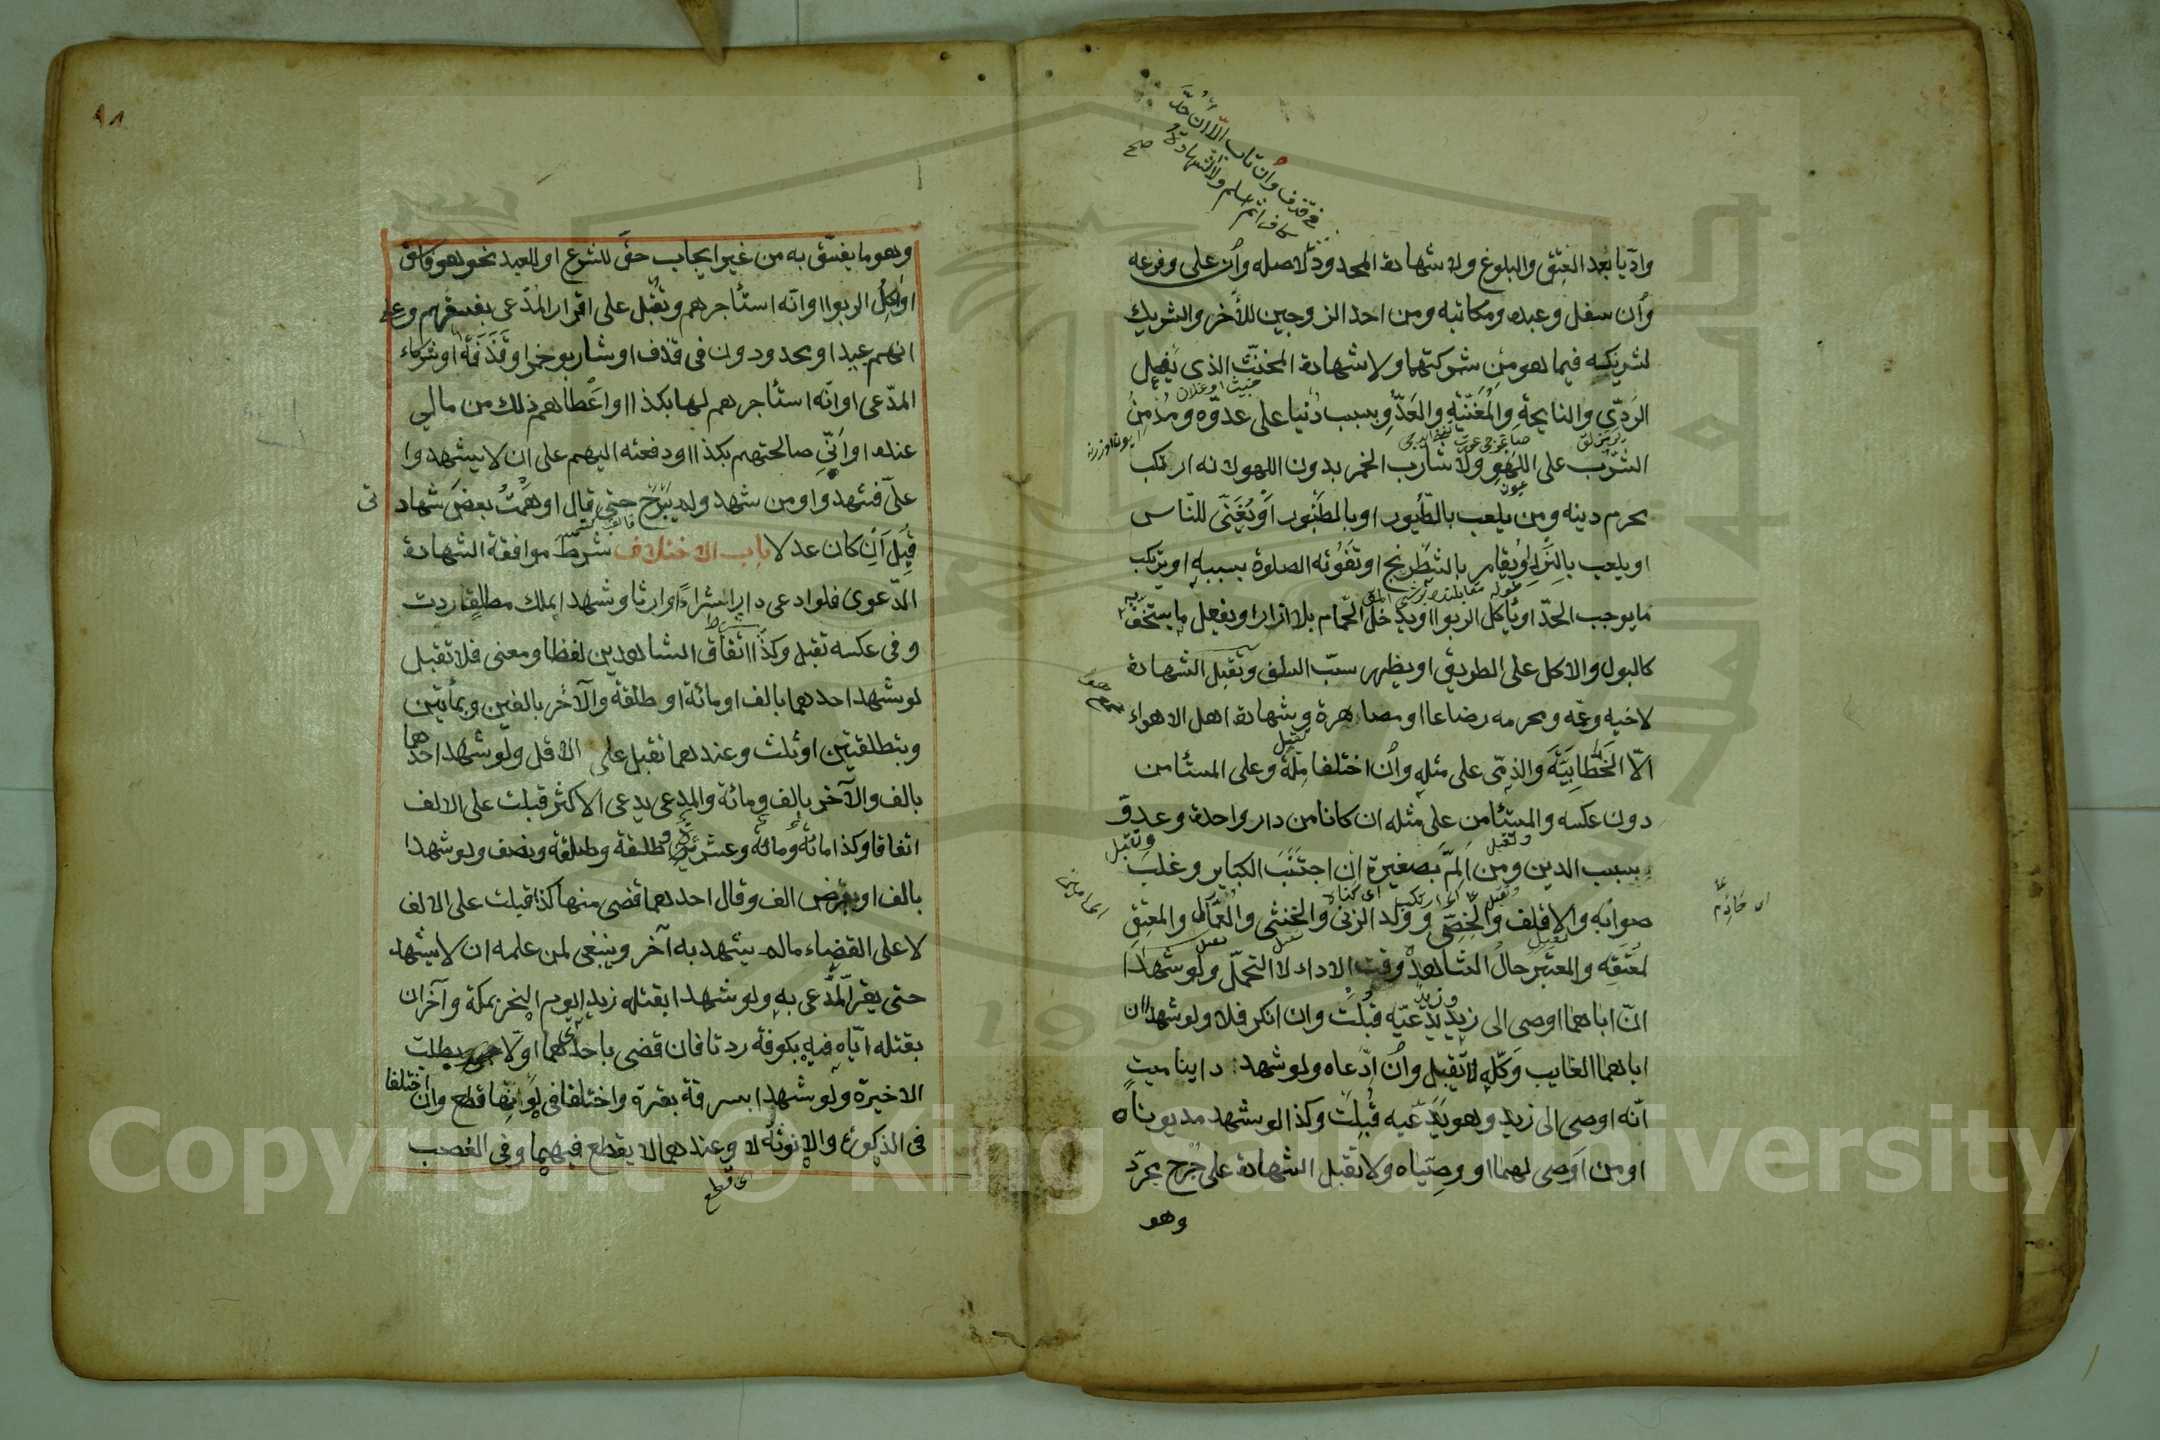 وادّيا بعد العتق والبلوغ ولا شهادة المحدود لاصله وأن على وفرعه
وأن سفل وعبده ومكاتبه ومن احد الزوجين للأخر والشريك
لشريكه فيما هو من شركتهما ولا شهادة المخنث الذى يفعل
الردى والنايحة والمغنّية والعدّو بسبب دنيا على عدوّه ومدمن
الشرب على اللهو ولا شارب الخمر بدون اللهو لانه ارتكب
محرم دينه ومن يلعب بالطّيور او بالطنبور أو يُغنّى للنّاس
او يلعب بالنرد او يقامر بالشطرنج او تفوته الصلوة بسببه او يرتكب
ما يوجب الحدّ او يأكل الربوا او يدخل الحمّام بلا ازار او يفعل ما يستخف
كالبول والاكل على الطريق او يظهر سبّ السلف وتقبل الشهادة
لاخيه وعمّه ومحرمه رضاعا او مصاهرة وشهادة اهل الاهواء
الّا الخَطّابيّة والذمّى على مثله وأن اختلفا ملّة وعلى المستأمن
دون عكسه والمستأمن على مثله ان كانا من دار واحدة وعدوّ
بسبب الدين ومن ألمّ بصغيرة ان اجتنب الكباير وغلب
صوابه والاقلف والخصّى وولد الزنى والخنثى والعمّال والمعتق
لمعتقه والمعتبر حال الشاهد وقت الاداء لا التحمّل ولو شهدا
انّ اباهما اوصى الى زيد وزيد يدّعيه قبلت وان انكر فلا ولو شهدا ان
اباهما الغايب وكّله لا تقبل وأن ادّعاه ولو شهد داينا ميت
انّه اوصى الى زيد وهو يدّعيه قبلت وكذا لو شهد مديوناه
او من اوصى لهما او وصيّاه ولا تقبل الشهادة على جرح مجرّد
وهو
٩٨
وهو ما يفسّق به من غير ايجاب حقّ للشرع او العبد نحو هو فاسق
او آكل الربوا او انّه استأجرهم وتقبل على اقرار المدّعى بفسقهم وعلى
انهم عبيد او محدودون فى قذف او شاربو خمر او قذفة او شركاء
المدّعى او انّه استأجرهم لها بكذا او اعطاهم ذلك من مالى
عنده او أنّى صالحتهم بكذا او دفعته اليهم على ان لا يشهدوا
علىّ فشهدوا ومن شهد ولم يبرح حتى قال اوهمت بعض شهادتى
قبل ان كان عدلا باب الاختلاف شرط موافقة الشهادة
الدّعوى فلو ادعى دارا شراء او ارثا وشهدا بملك مطلق ردت
وفى عكسه تقبل وكذا اتفاق الشاهدين لفظا ومعنى فلا تقبل
لو شهد احدهما بالف او مائة او طلقة والآخر بالفين وبمأتين
وبتطليقتين او ثلث وعندهما تقبل على الاقل ولو شهد احدهما
بالف والآخر بالف ومائة والمدعى يدعى الاكثر قبلت على الالف
اتفاقا وكذا مائة ومائة وعشرة وطلقة وطلقة ونصف ولو شهدا
بالف او بقرض الف وقال احدهما قضى منها كذا قبلت على الالف
لا على القضاء ما لم يشهد به آخر وينبغى لمن علمه ان لا يشهد
حتى يقر المدّعى به ولو شهدا بقتله زيدا يوم النحر بمكة وآخران
بقتله ايّاه فيه بكوفة ردتا فان قضى باحديهما اولا بطلت
الاخيرة ولو شهدا بسرقة بقرة واختلفا فى لونها قطع وان اختلفا
فى الذكورة والانوثة لا وعندهما لا يقطع فيهما وفى الغصب
Copyright © King Saud University